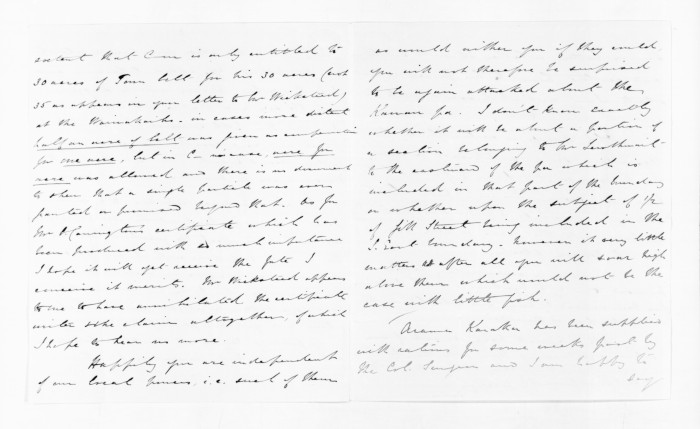 extent that C— is only entitled to
30 acres of Town belt for his 30 acres (not
35 as appears in your letter to Mr Wicksteed)
at the Waiwakaiho. in cases more distant
half an acre of belt was given as compensation
for one acre, but in C—'s case, acre for
acre was allowed and there is no document
to show that a single particle was ever
granted or promised beyond that. As for
Mr O Carrington's certificate which has
been produced with so much importance
I hope it will yet receive the fate I
conceive it merits. Mr Wicksteed appears
to me to have annihilated the certificate
and the claim altogether, of which
I hope to hear no more.
Happily you are independent
of our local powers, i.e. such of them
as would wither you if they could
you will not therefore be surprised
to be again attacked about the
Kawau Pa. I don't know exactly
whether it will be about a portion of
a section belonging to Mr
to the eastward of the Pa which is
included in that part of the boundary
or whether upon the subject of ½
of Gill Street being included in the
boundary. however it very little
matters as after all you will soar high
above them which would not be the
case with little fish.
has been supplied
with rations for some weeks past by
the Col. Surgeon and I am happy to
say